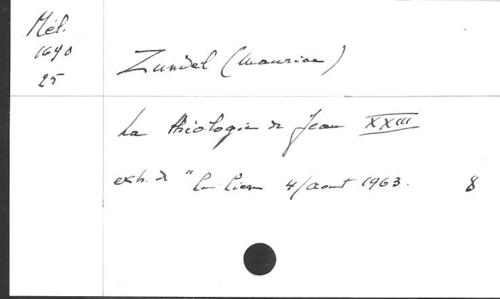 Mél.
1690
25
Zundel (Maurice)
La théologie de Jean XXIII
extr. de "Le Lien 4/aout 1963. 8